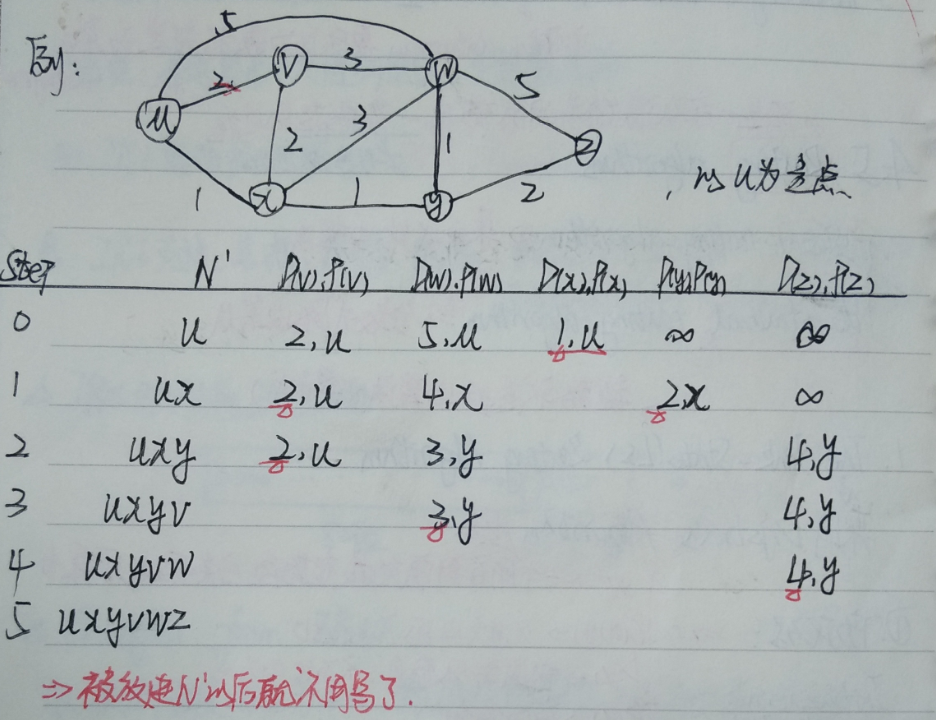 例:
5
2 V 3 W 5
u 2 3 1 z
1 x 1 y 2
,以u为起点
Step N' D(v),P(v) D(w),P(w) D(x),P(x) D(y),P(y) D(z),P(z)
0 u 2,u 5,u 1,u ∞ ∞
1 ux 2,u 4,x 2,x ∞
2 uxy 2,u 3,y 4,y
3 uxyv 3,y 4,y
4 uxyvw 4,y
5 uxyvwz
=> 被放进N'以后就不用写了.